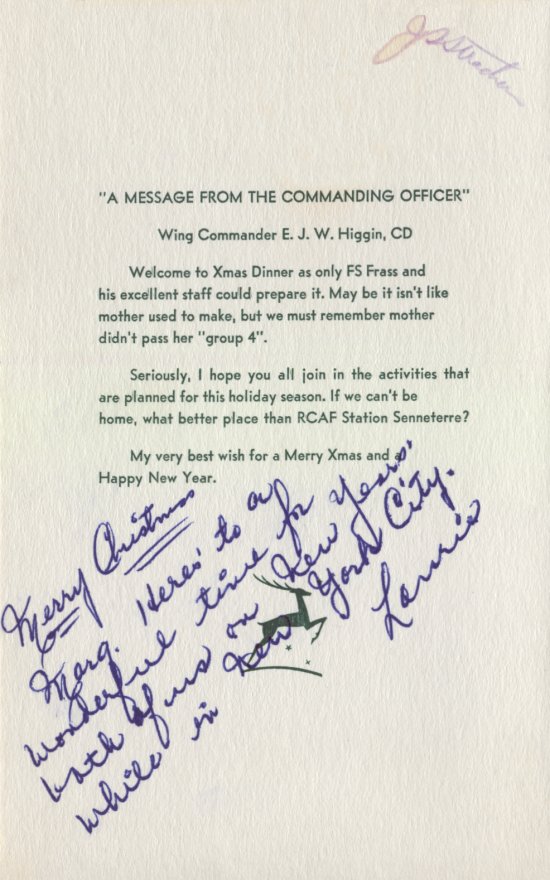 "A MESSAGE FROM THE COMMANDING OFFICER"
Wing Commander E. J. W. Higgin, CD
Welcome to Xmas Dinner as only FS Frass and
his excellent staff could prepare it. May be it isn't like
mother used to make, but we must remember mother
didn't pass her "group 4".
Seriously, I hope you all join in the activities that
are planned for this holiday season. If we can't be
home, what better place than RCAF Station Senneterre?
My very best wish for a Merry Xmas and a
Happy New Year.
Merry Christmas
Marg. Heres' to a
wonderful time for
both of us on New Years'
while in New York City.
Laurie